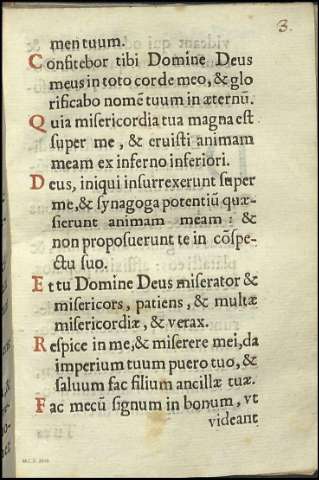 3.
men tuum.
Confitebor tibi Domine Deus
meus in toto corde meo, & glo
rificabo nomē tuum in æternū.
Quia misericordia tua magna est
super me, & eruisti animam
meam ex inferno inferiori.
Deus, iniqui insurrexerunt super
me, & synagoga potentiū quæ-
sierunt animam meam: &
non proposuerunt te in cōspe-
ctu suo.
Et tu Domine Deus miserator &
misericors, patiens, & multæ
misericordiæ, & verax.
Respice in me, & miserere mei, da
imperium tuum puero tuo, &
saluum fac filium ancillæ tuæ.
Fac mecū signum in bonum, vt
videant